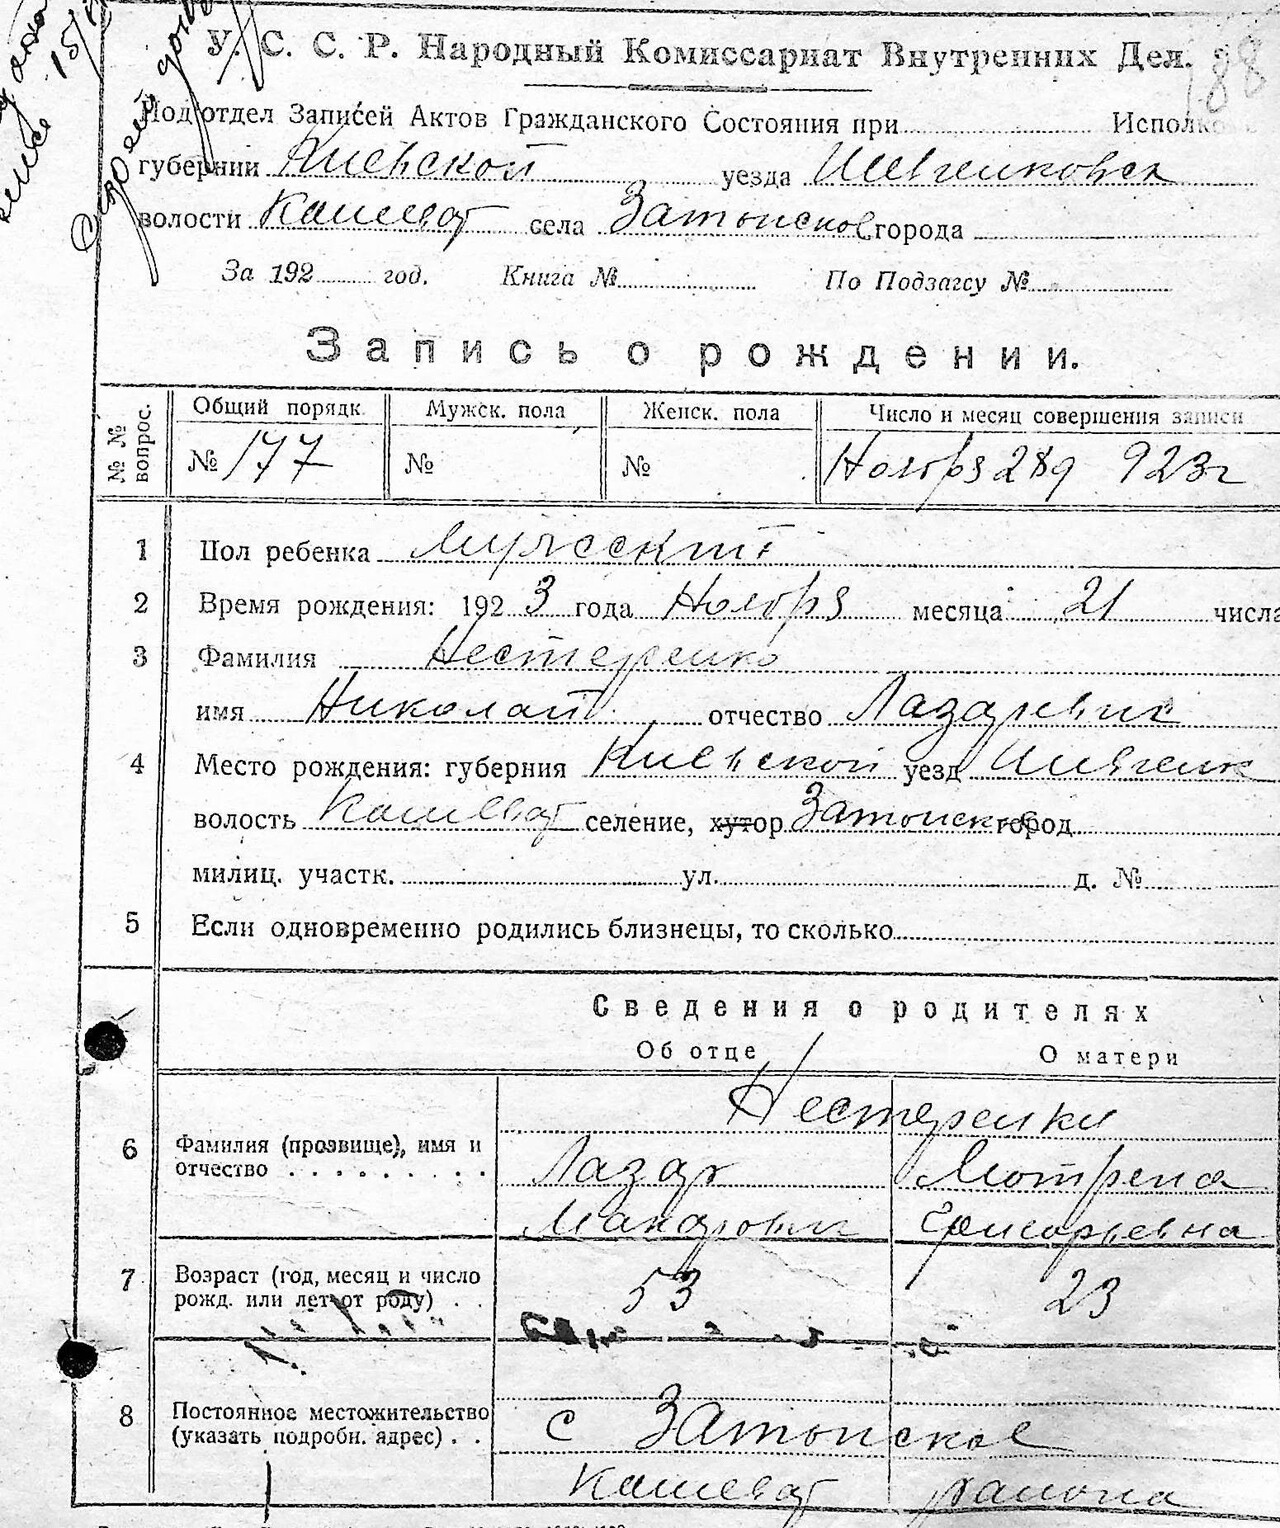 188
У. С. С. Р. Народный Комиссариат Внутренних Дел.
Подотдел Записей Актов Гражданского Состояния при Исполко
губернии Киевской уезда Шевченковск
волости Кашеват села Затонское города
За 192 год. Книга № По Подзагсу №
Запись о рождении.
№ № вопрос. Общий порядк. Мужск. пола Женск. пола Число и месяц совершения записи
№ 177 № № Ноября 28д 923г
1 Пол ребенка Мужской
2 Время рождения: 1923 года Ноября месяца 21 числа
3 Фамилия Нестеренко
имя Николай отчество Лазаревич
4 Место рождения: губерния Киевской уезд Шевченк
волость Кашеват селение, хутор Затонское город
милиц. участк. ул. д. №
5 Если одновременно родились близнецы, то сколько
Сведения о родителях
Об отце О матери
Нестеренки
6 Фамилия (прозвище), имя и отчество Лазарь Мотрена
Макарович Григорьевна
7 Возраст (год, месяц и число рожд. или лет от роду) 53 23
8 Постоянное местожительство (указать подробн. адрес) с Затонское
Кашеват района